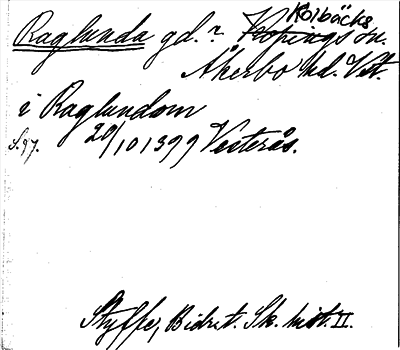 Raglunda gd.? Kolbäcks
Köpings sn.
Åkerbo hd. Vstl.
i Raglundom
S. 97. 20/10 1399 Vesterås.
Styffe, Bidrat. Sk. hist. II.